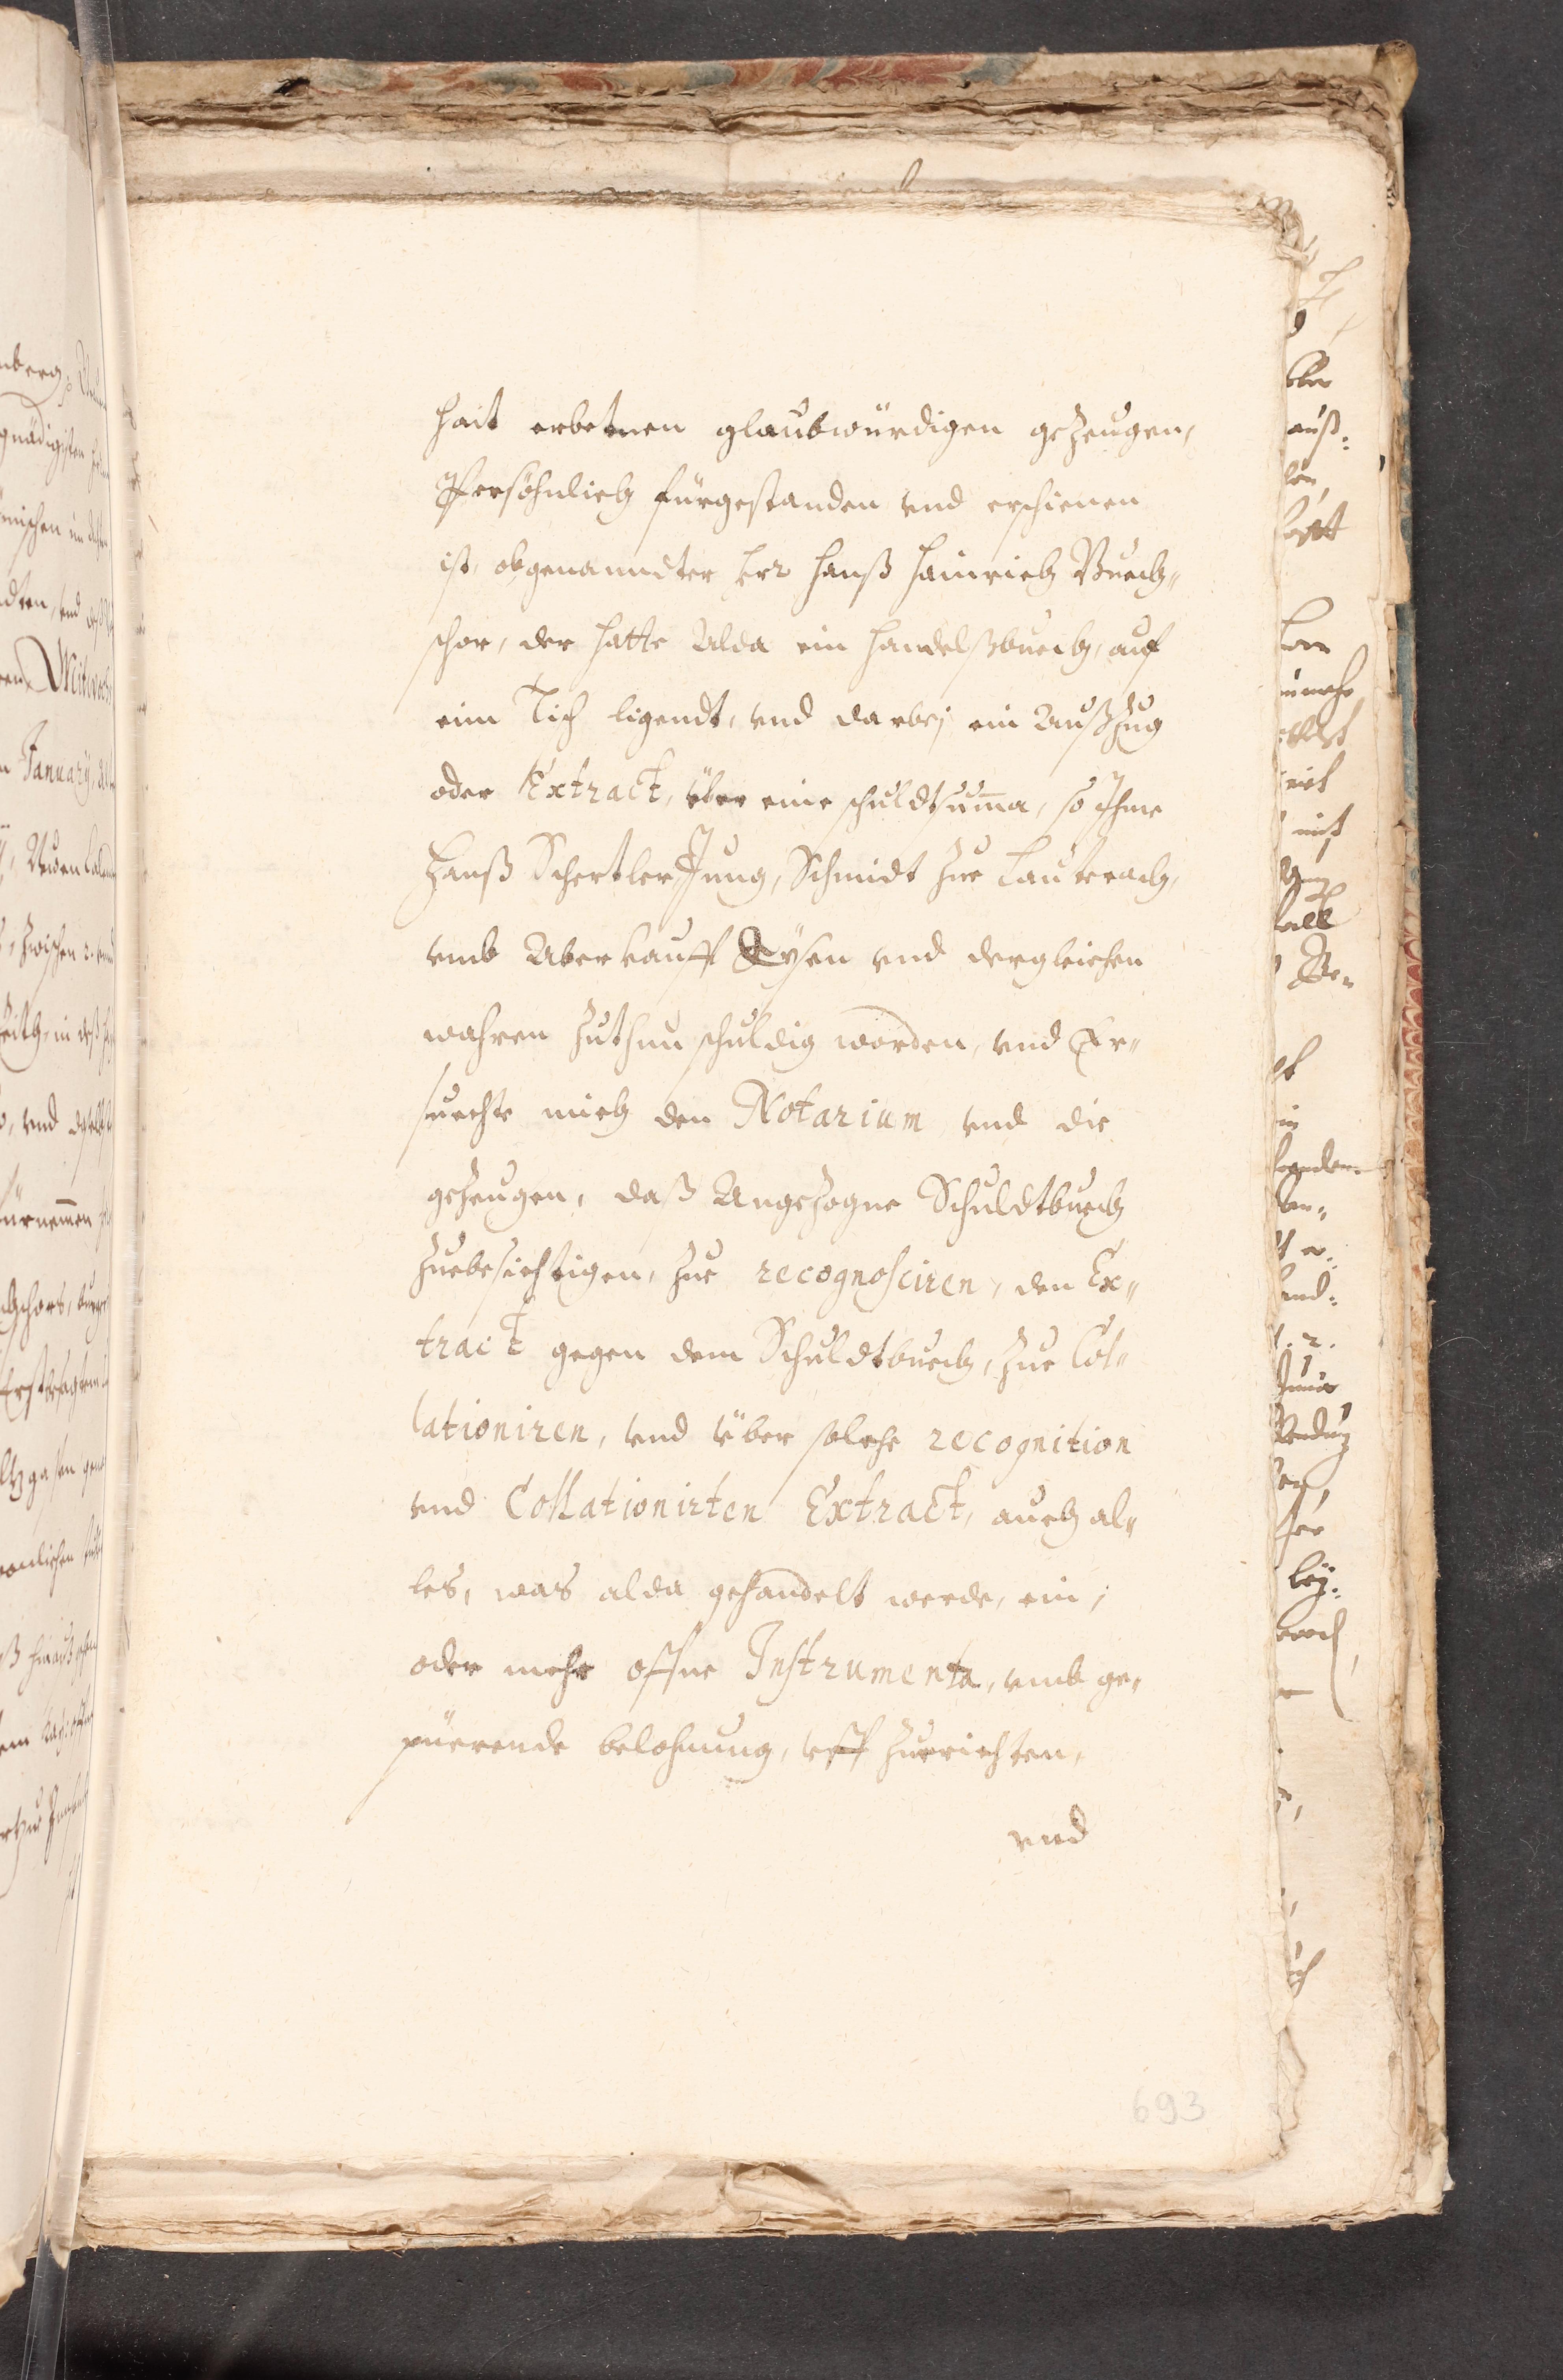 hait erbetnen glaubwürdigen gezeugen,
Persöhnlich fürgestanden vnd erschienen
ist, obgenanndter Herr Hanß Hainrich Buech„
schor, der hatte Alda ein Handelßbuech, auf
eim Tisch ligendt, vnd darbej ein Außzug
oder Extract, über eine schuldtsuma, so Ihme
Hanß Schertler Jung, Schmidt zue Lauterach,
vmb Aberkauff Eÿsen vnd dergleichen
wahren zuthun schuldig worden, vnd Er„
suechte mich den Notarium vnd die
gezeugen, daß Angezogne Schuldtbuech
zuebesichtigen, zue recognosciren, den Ex„
tract gegen dem Schuldtbuech, zue Col„
lationiren, vnd über solche recognition
vnd Collationirten Extract, auch al„
les, was alda gehandelt werde, ein,
oder mehr offne Instrumenta, vmb ge„
püerende belohnung, vff zuerichten,
vnd
693